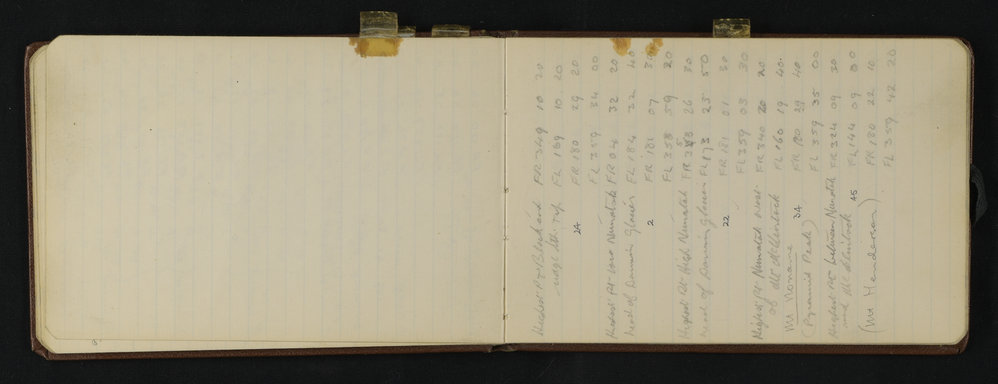 Highest Pt Blackend FR 349 10 20
FL 169 10 20
24 FR 180 29 20
FL 359 34 00
Highest Pt Low Nunatak FR 04 32 20
head of Darwin Glacier FL 184 32 40
2 FR 181 07
FL 358 59 20
Highest Pt High Nunatak FR 26 30
head of Darwin Glacier FL 173 25 50
22 FR 181 01 30
FL 359 03 30
Highest Pt Nunatak West FR 340 20 20
of Mt McClintock FL 160 19 40
Mt 34 FR 180 39 40
(Pyramid Peak) FL 359 35 00
Highest Pt between Nunatak FR 324 09 30
and Mt McClintock 45 FL 144 09 00
(Mt Henderson) FR 180 22 10
FL 359 42 20